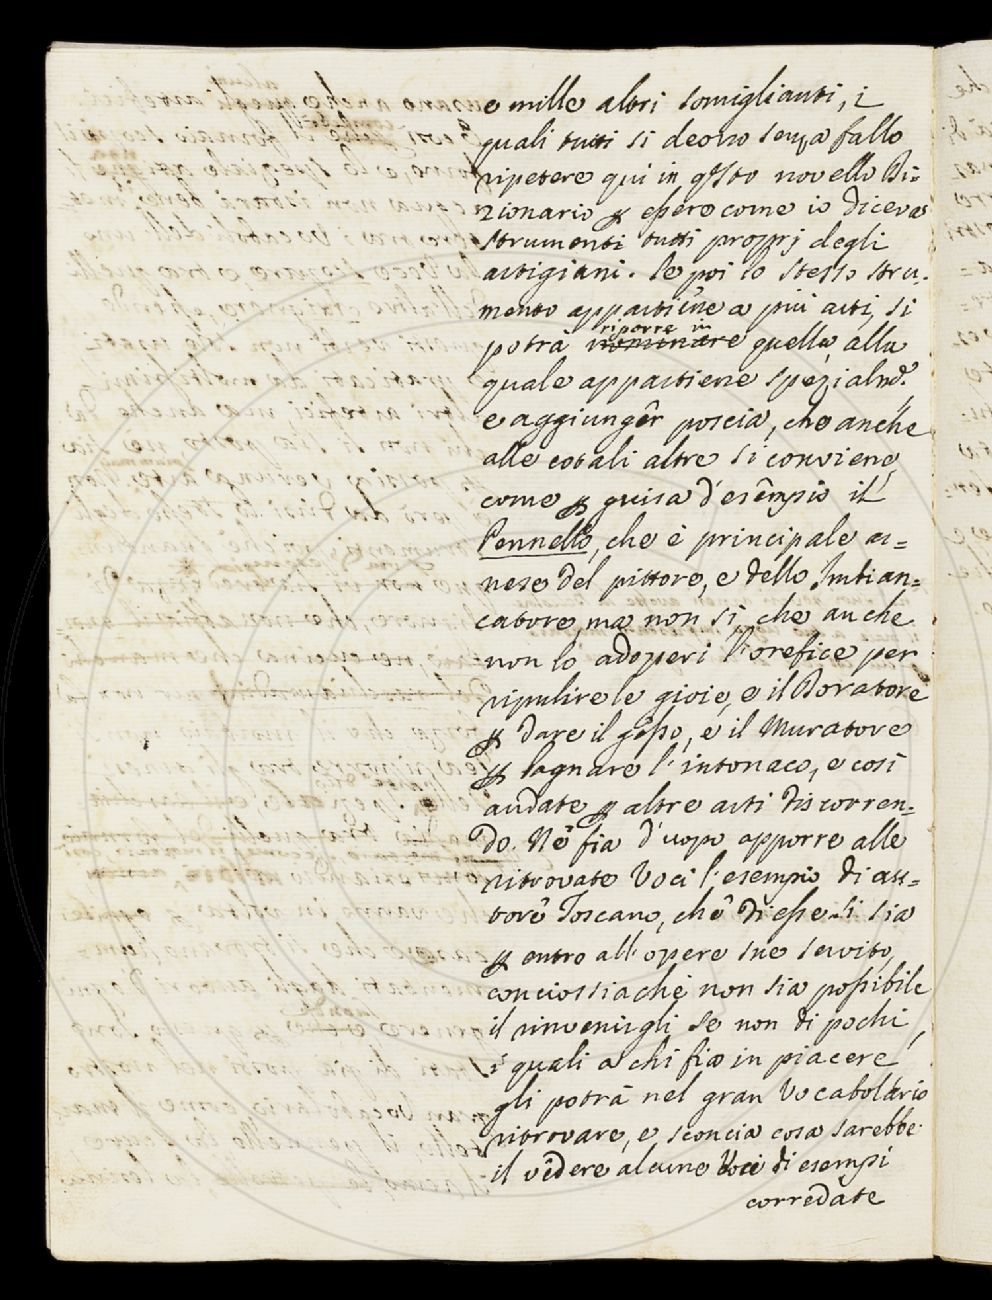 e mille altri somiglianti, i
quali tutti si deono senza fallo
ripetere qui in qsto novello Di=
zionario ꝑ essere come io diceva
strumenti tutti proprj degli
artigiani. Se poi lo stesso stru-
mento appartiene a più arti, si
riporre in
potrà quella, alla
quale appartiene spezialm.
e aggiunger poscia, che anche
alle cotali altre si conviene,
come ꝑ guisa d'esempio il
Pennello, che è principale ar=
nese del pittore, e dello Imbian=
catore, ma non sì, che anche
non lo adoperi l'orefice per
ripulire le gioie, e il Doratore
ꝑ dare il gesso, e il Muratore
ꝑ bagnare l'intonaco, e così
andate ꝑ altre arti discorren=
do. Nè fia d'uopo apporre alle
ritrovate Voci l'esempio di au=
tore Toscano, che di esse si sia
ꝑ entro all'opere sue servito,
conciossiachè non sia possibile
il rinvenirgli se non di pochi,
i quali a chi fia in piacere
gli potrà nel gran Vocabolario
ritrovare, e sconcia cosa sarebbe
il vedere alcune Voci di esempi
corredate